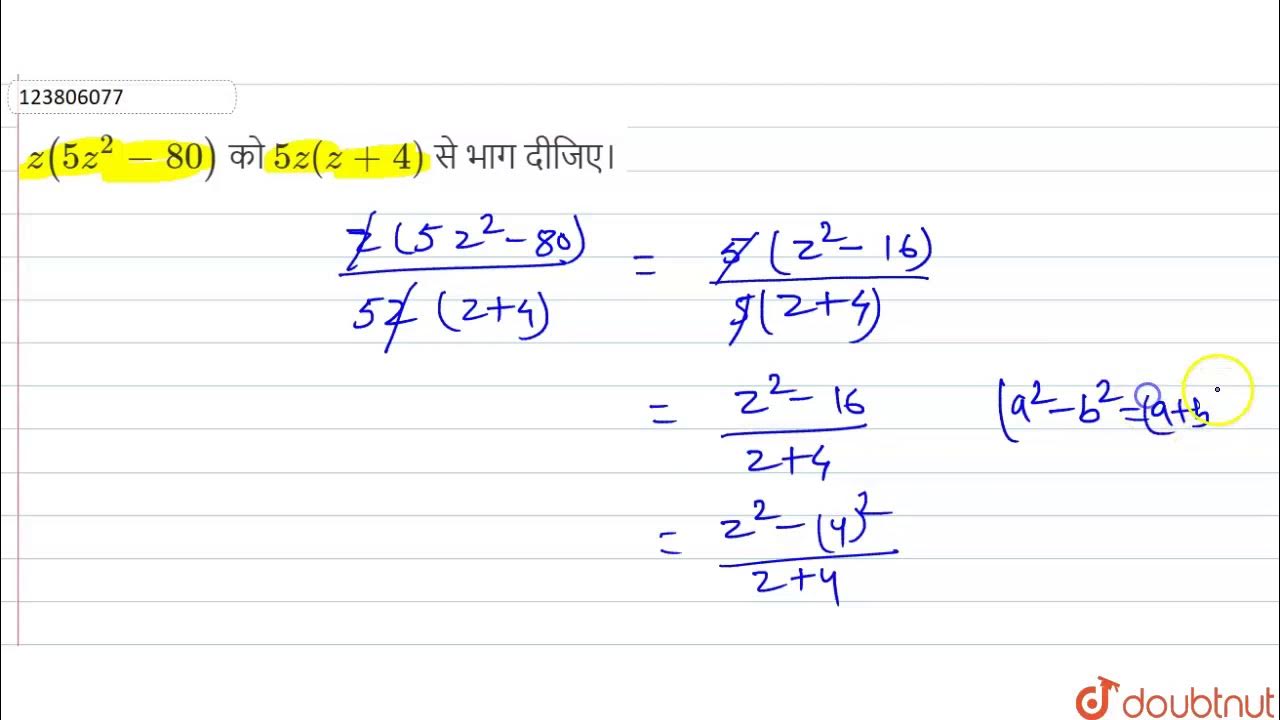 123806077
z(5z² − 80) को 5z(z + 4) से भाग दीजिए।
z(5z²-80)/5z(z+4) = 5(z²-16)/5(z+4)
= z²-16/z+4 (a²-b²=(a+b
= z²-(4)²/z+4
doubtnut